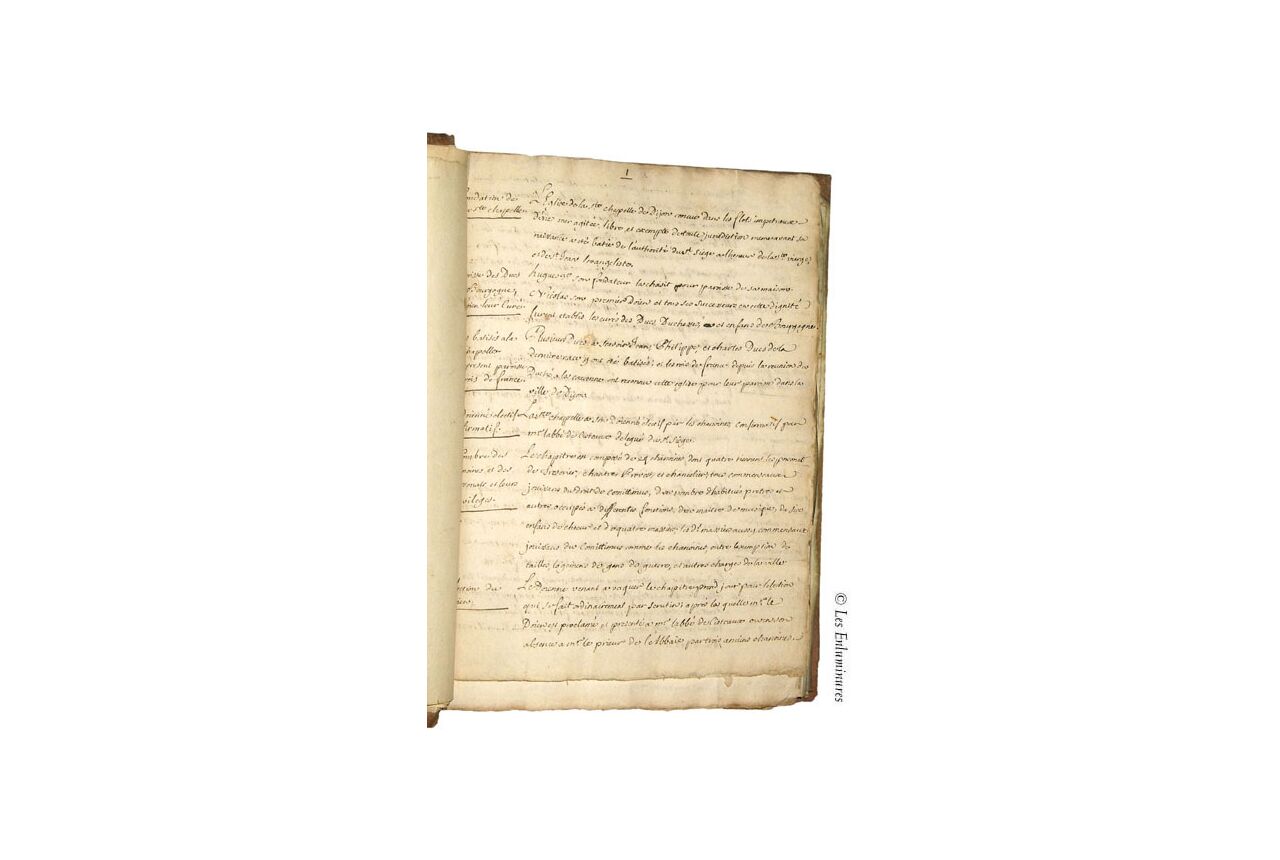 1
ndation de
ste chappelle
L'Eglise de la ste chapelle de Dijon conceue dans les flots impetueux
d'une mer agitée, libre et exempte de toute jurisdiction mesme avant sa
naissance a esté batie de l'authorité du st siege a l'honneur de la ste vierge
et de st Jean Evangeliste.
oisse des Ducs
Bourgogne,
leur Curé
hugues son fondateur la choisit pour paroisse de sa maison
Nicolas son premier Doien et tous ses successeurs en cette dignité
furent etablis les curés des Ducs, Duchesses, et enfans de Bourgogne
batisés a la
chapelle
present paroisse
rois de france
Plusieurs Ducs a scavoir Jean, Philippe, et charles Ducs de la
derniere race y ont été batisés; et les rois de france depuis la reunion du
Duché a la couronne ont reconnu cette eglise pour leur paroisse dans la
ville de Dijon.
electif
firmatif.
La ste chapelle a son Doienné electif par les chanoines, confirmatif par
mr labbé de Citeaux delegué du st siege.
mbre des
noines, et des
et leurs
vileges.
Le chapitre est composé de 24 chanoines, dont quatre tiennent les
de Tresorier, chantre, Prevost, et chancelier, tous commensaux
jouissans du droit de comittimus, d'un nombre d'habitués pretres et
autres occupés a differentes fonctions, d'un maitre de musique, de six
enfans de choeur et de quatre massiers, les d. massiers aussy commensaux
jouissans du comittimus comme les chanoines, outre lexemption de
tailles, logemens de gens de guerre, et autres charges de la ville
ction du
Le Doienné venant a vaquer le chapitre prend jour pour lelection
qui se fait ordinairement par scrutin; apres laquelle mr le
Doien est proclamé et presenté a mr labbé de Citeaux ou en son
absence a mr le prieur de l'Abbaie, par trois anciens chanoines.
© Les Enluminures